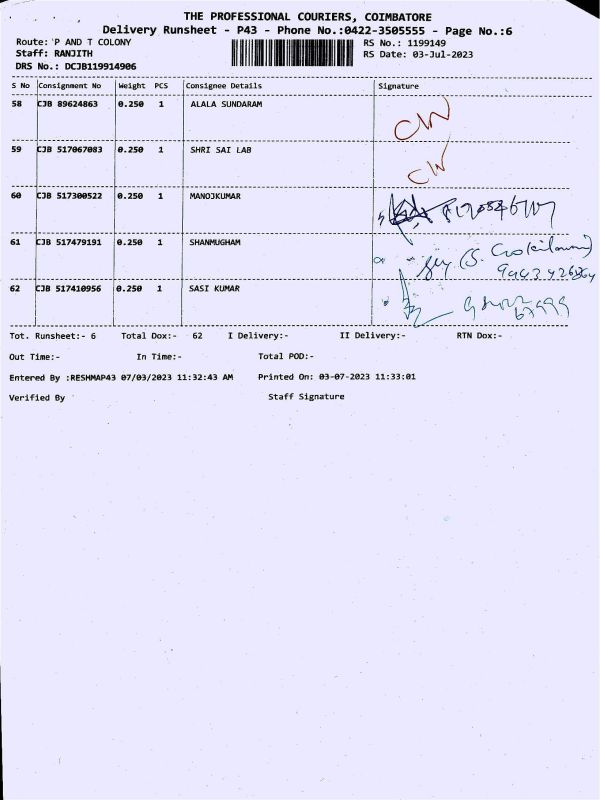 THE PROFESSIONAL COURIERS, COIMBATORE
Delivery Runsheet - P43 - Phone No.:0422-3505555 - Page No.:6
Route: P AND T COLONY RS No.: 1199149
Staff: RANJITH RS Date: 03-Jul-2023
DRS No.: DCJB119914906
S No Consignment No Weight PCS Consignee Details Signature
58 CJB 89624863 0.250 1 ALALA SUNDARAM
59 CJB 517067083 0.250 1 SHRI SAI LAB
60 CJB 517300522 0.250 1 MANOJKUMAR
61 CJB 517479191 0.250 1 SHANMUGHAM
62 CJB 517410956 0.250 1 SASI KUMAR
Tot. Runsheet:- 6 Total Dox:- 62 I Delivery:- II Delivery:- RTN Dox:-
Out Time:- In Time:- Total POD:-
Entered By :RESHMAP43 07/03/2023 11:32:43 AM Printed On: 03-07-2023 11:33:01
Verified By Staff Signature